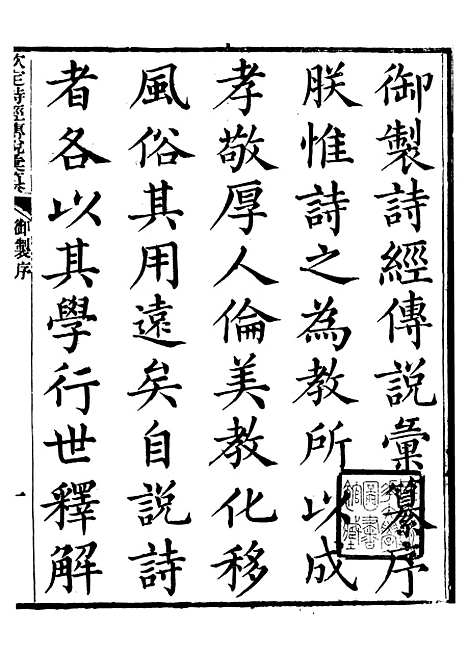 御製詩經傳說彙纂序
朕惟詩之為教所以成
孝敬厚人倫美教化移
風俗其用遠矣自說詩
者各以其學行世釋解
欽定詩經傳說彙纂 御製序 一